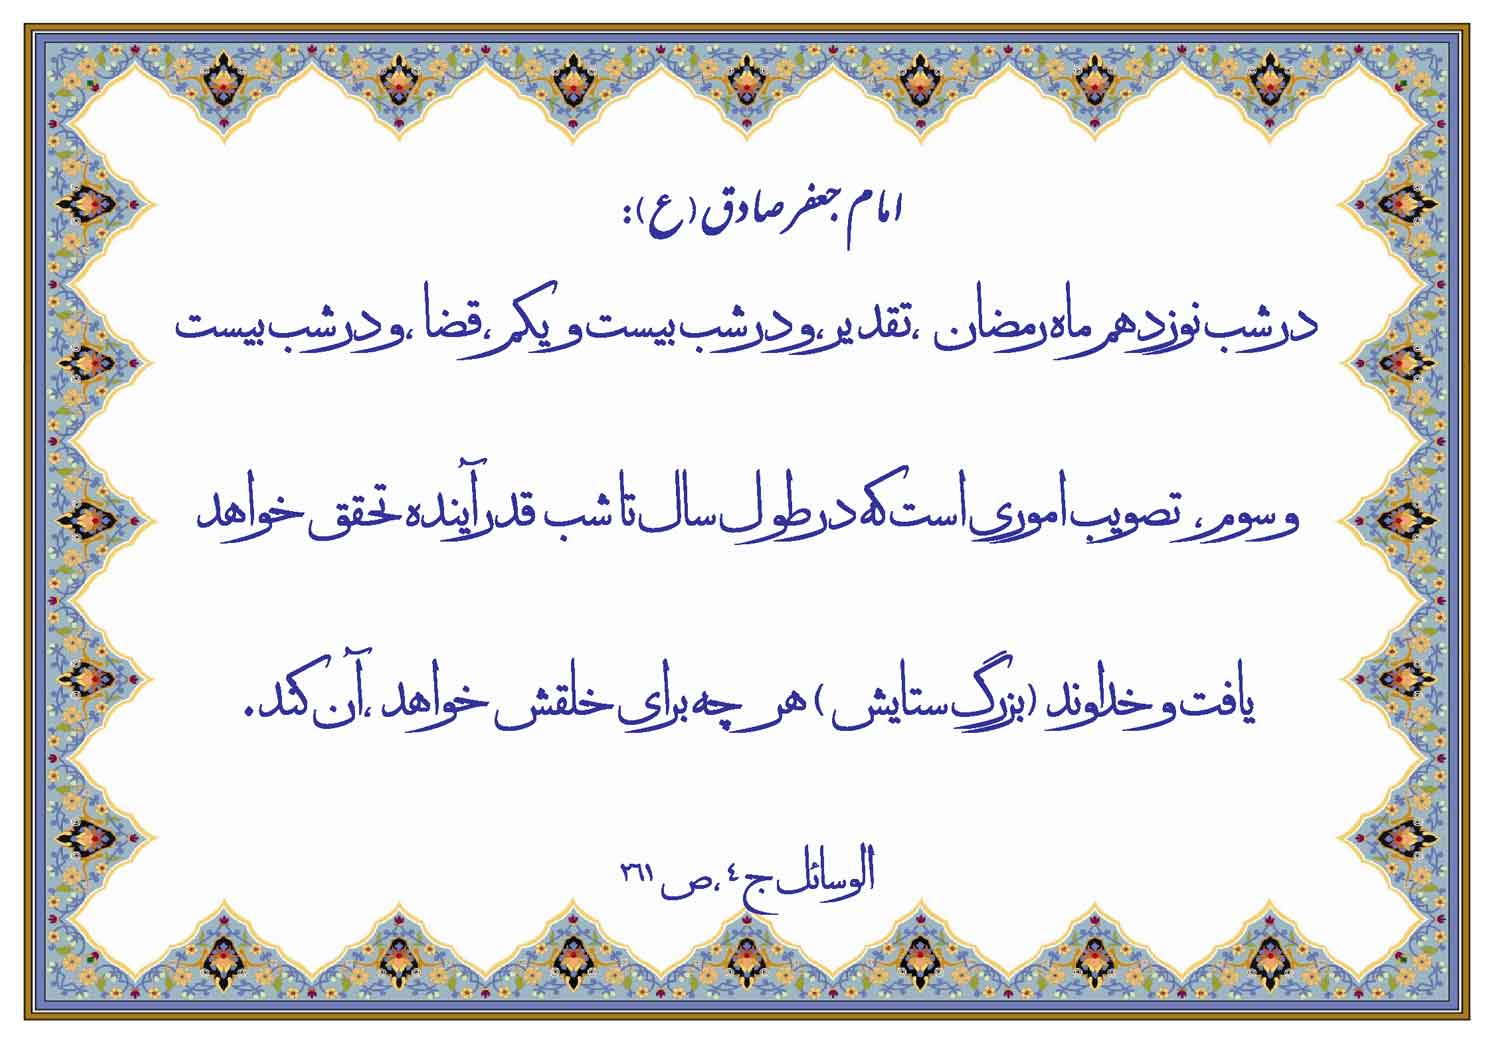 امام جعفر صادق (ع):
در شب نوزدهم ماه رمضان ،تقدیر،و در شب بیست و یکم،قضا ،و در شب بیست
و سوم، تصویب اموری است که در طول سال تا شب قدر آینده تحقق خواهد
یافت و خداوند (بزرگ ستایش ) هر چه برای خلقش خواهد ،آن کند.
الوسائل ج٤ ،ص ٢٦١